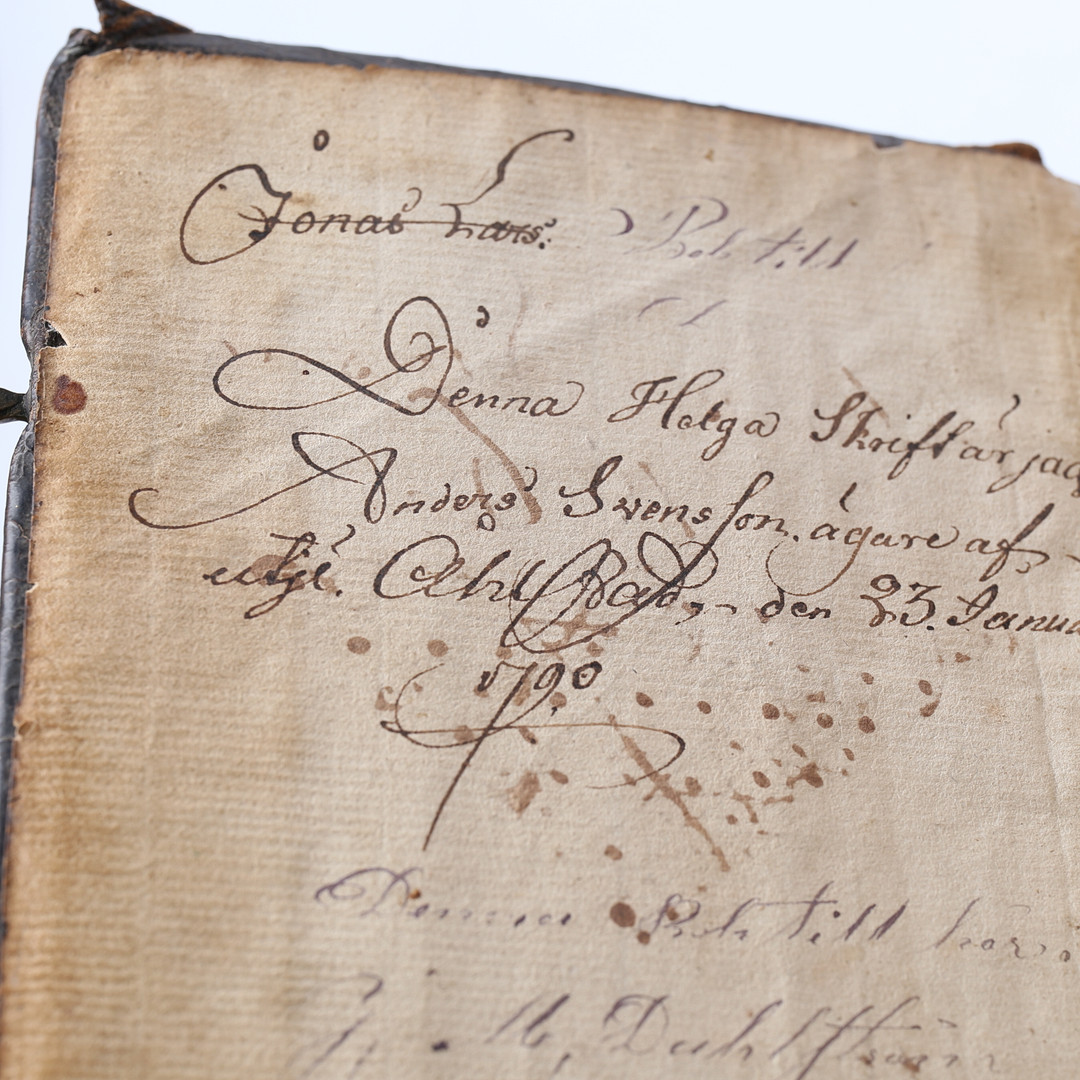 Jonas Lars:
Denna Helga Skrift är jag
Anders Swensson. ägare af
utji. den 23. Janua
1790
Denna Bok till hör
J. M. Dahlström